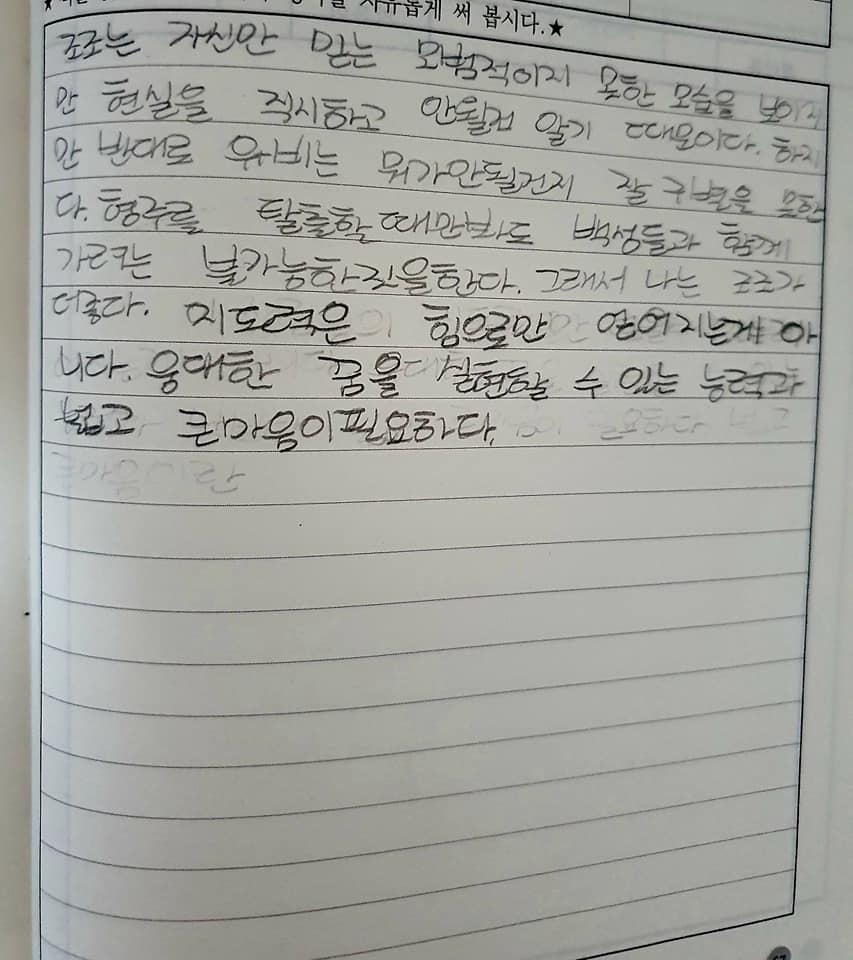 자유롭게 써 봅시다.★
조조는 자신만 믿는 모험적이지 못한 모습을 보이지
만 현실을 직시하고 안될걸 알기 때문이다. 하지
만 반대로 유비는 뭐가안될건지 잘 구별을 못한
다. 형주를 탈출할 때만봐도 백성들과 함께
가르는 불가능한짓을한다. 그래서 나는 조조가
더좋다. 지도력은 힘으로만 얻어지는게 아
니다. 웅대한 꿈을 실현할 수 있는 능력과
넓고 큰마음이필요하다.